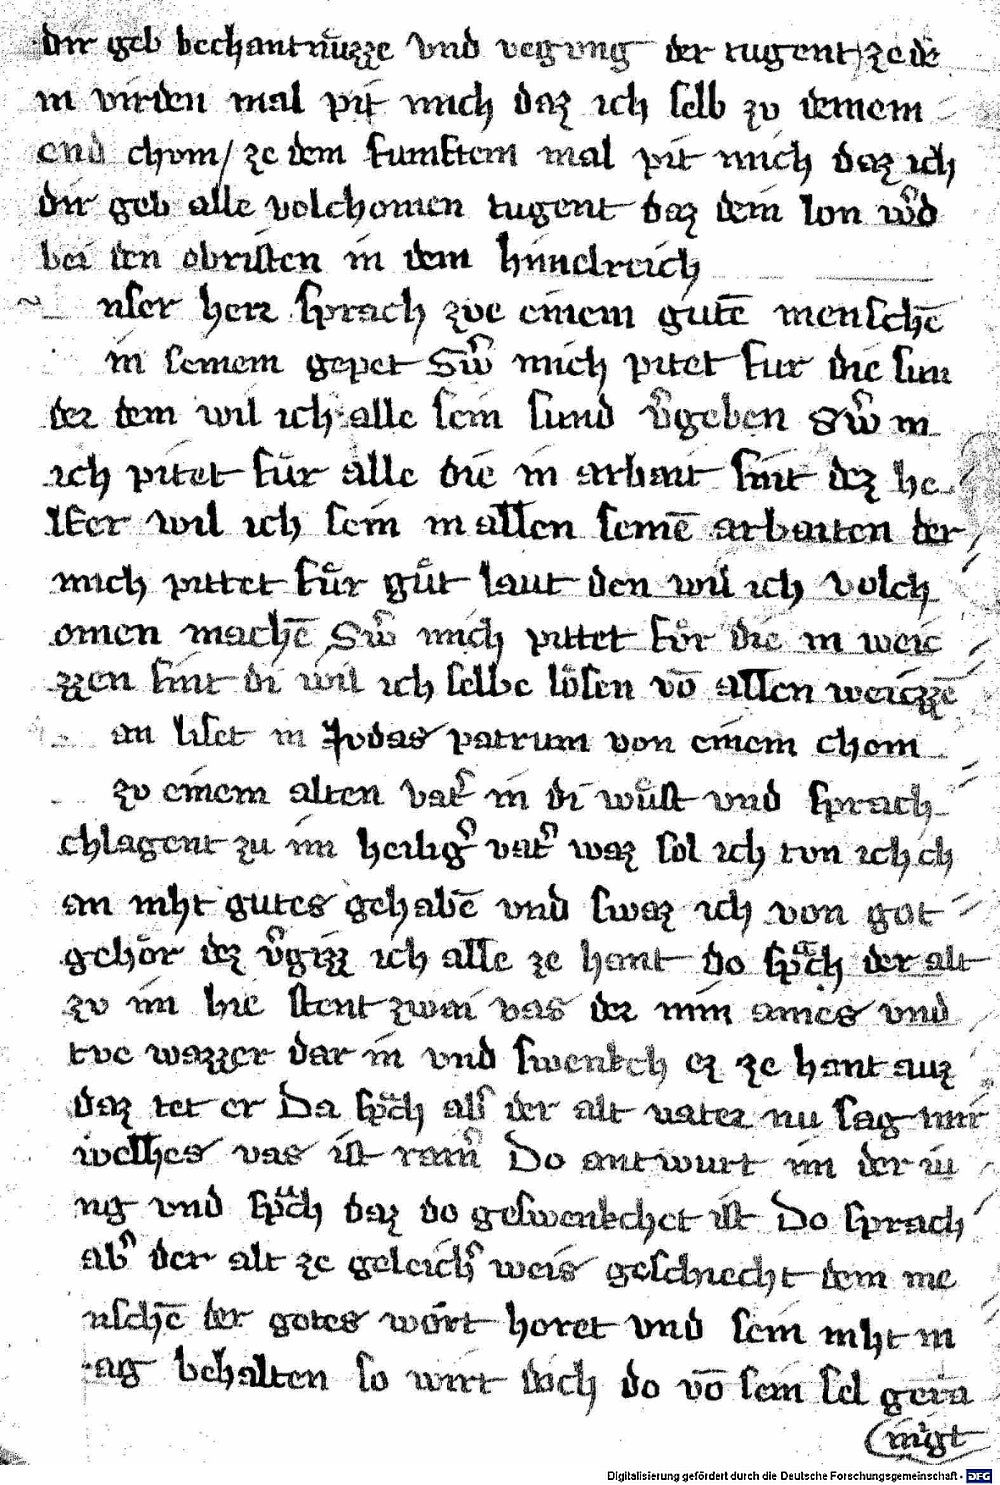 dir geb bechantnůzze vnd vegvng der tugent / ze dē
m virden mal pit mich daz ich selb zv deinem
end chvm / ze dem fumftem mal pit mich daz ich
dir geb alle volchomen tugent daz dein lon w͛d
bei den obristen in dem himelreich
nser herr sprach zve einem gutē menschē
in seinem gepet Sw͛ mich pitet fur die sun
der dem wil ich alle sein sund v͛geben Sw͛ m
ich pitet fůr alle die in arbait sint dez he
lfer wil ich sein in allen seinē arbaiten der
mich pittet fůr gůt laut den wil ich volch
omen machē Sw͛ mich pittet fůr die in weic
zzen sint di wil ich selbe lôsen vō allen weiczzē
an liset in Judas patrum von einem chom
zv einem alten vat͛ in di wůst vnd sprach
chlagent zu im heilig͛ vat͛ waz sol ich tvn ich ch
an niht gutes gehabē vnd swaz ich von got
gehôr dez v͛gizz ich alle ze hant do spͣch der alt
zv im hie stent zwai vas der nim aines vnd
tve wazzer dar in vnd swenkch ez ze hant auz
daz tet er Da spͣch als der alt vater nu sag mir
welhes vas ist rain͛ Do antwurt im der iu
ng vnd spͣch daz do geswenkchet ist Do sprach
ab͛ der alt ze geleich͛ weis geschiecht dem me
nschē der gotes wort horet vnd sein niht m
ag behalten so wirt doch do vō sein sel gera
inigt
Digitalisierung gefördert durch die Deutsche Forschungsgemeinschaft - DFG